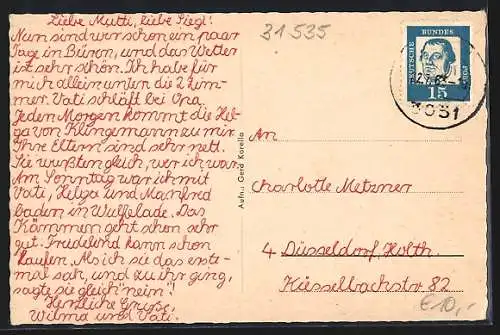 Liebe Mutti, liebe Siegl!
Nun sind wir schon ein paar
Tage in Büren, und das Wetter
ist sehr schön. Ich habe für
mich allein unten die 2 Zim-
mer. Vati schläft bei Opa.
Jeden Morgen kommt die Hel-
ga von Klingemann zu mir.
Ihre Eltern sind sehr nett.
Sie wußten gleich, wer ich war.
Am Sonntag war ich mit
Vati, Helga und Manfred
baden in Wulfelade. Das
Kämmen geht schon sehr
gut. Trudelind kann schon
laufen. Als ich sie das erste-
mal sah, und zu ihr ging,
sagte sie gleich "nein"!
Herzliche Grüße,
Wilma und Vati.
Aufn.: Gerd Korella
31535
DEUTSCHE BUNDESPOST
15
3051
An
Charlotte Metzner
4 Düsseldorf, Holth.
Kiesselbachstr. 82
€10,-